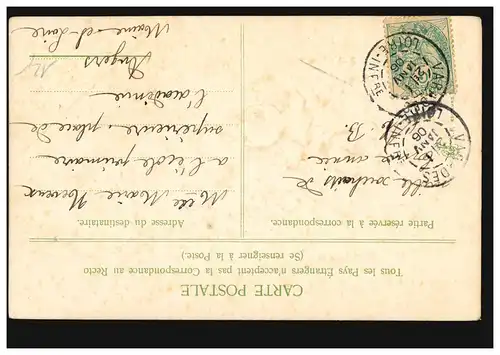 CARTE POSTALE
Tous les Pays Étrangers n'acceptent pas la Correspondance au Recto
(Se renseigner à la Poste.)
Partie réservée à la correspondance.
Adresse du destinataire.
Mille souhaits de
année
B.
Marie
a l'école primaire
supérieure, place de
l'académie
Angers
Maine-et-Loire
VARADES
LOIRE-INFRE
06
VARADES
LOIRE-INFRE
06